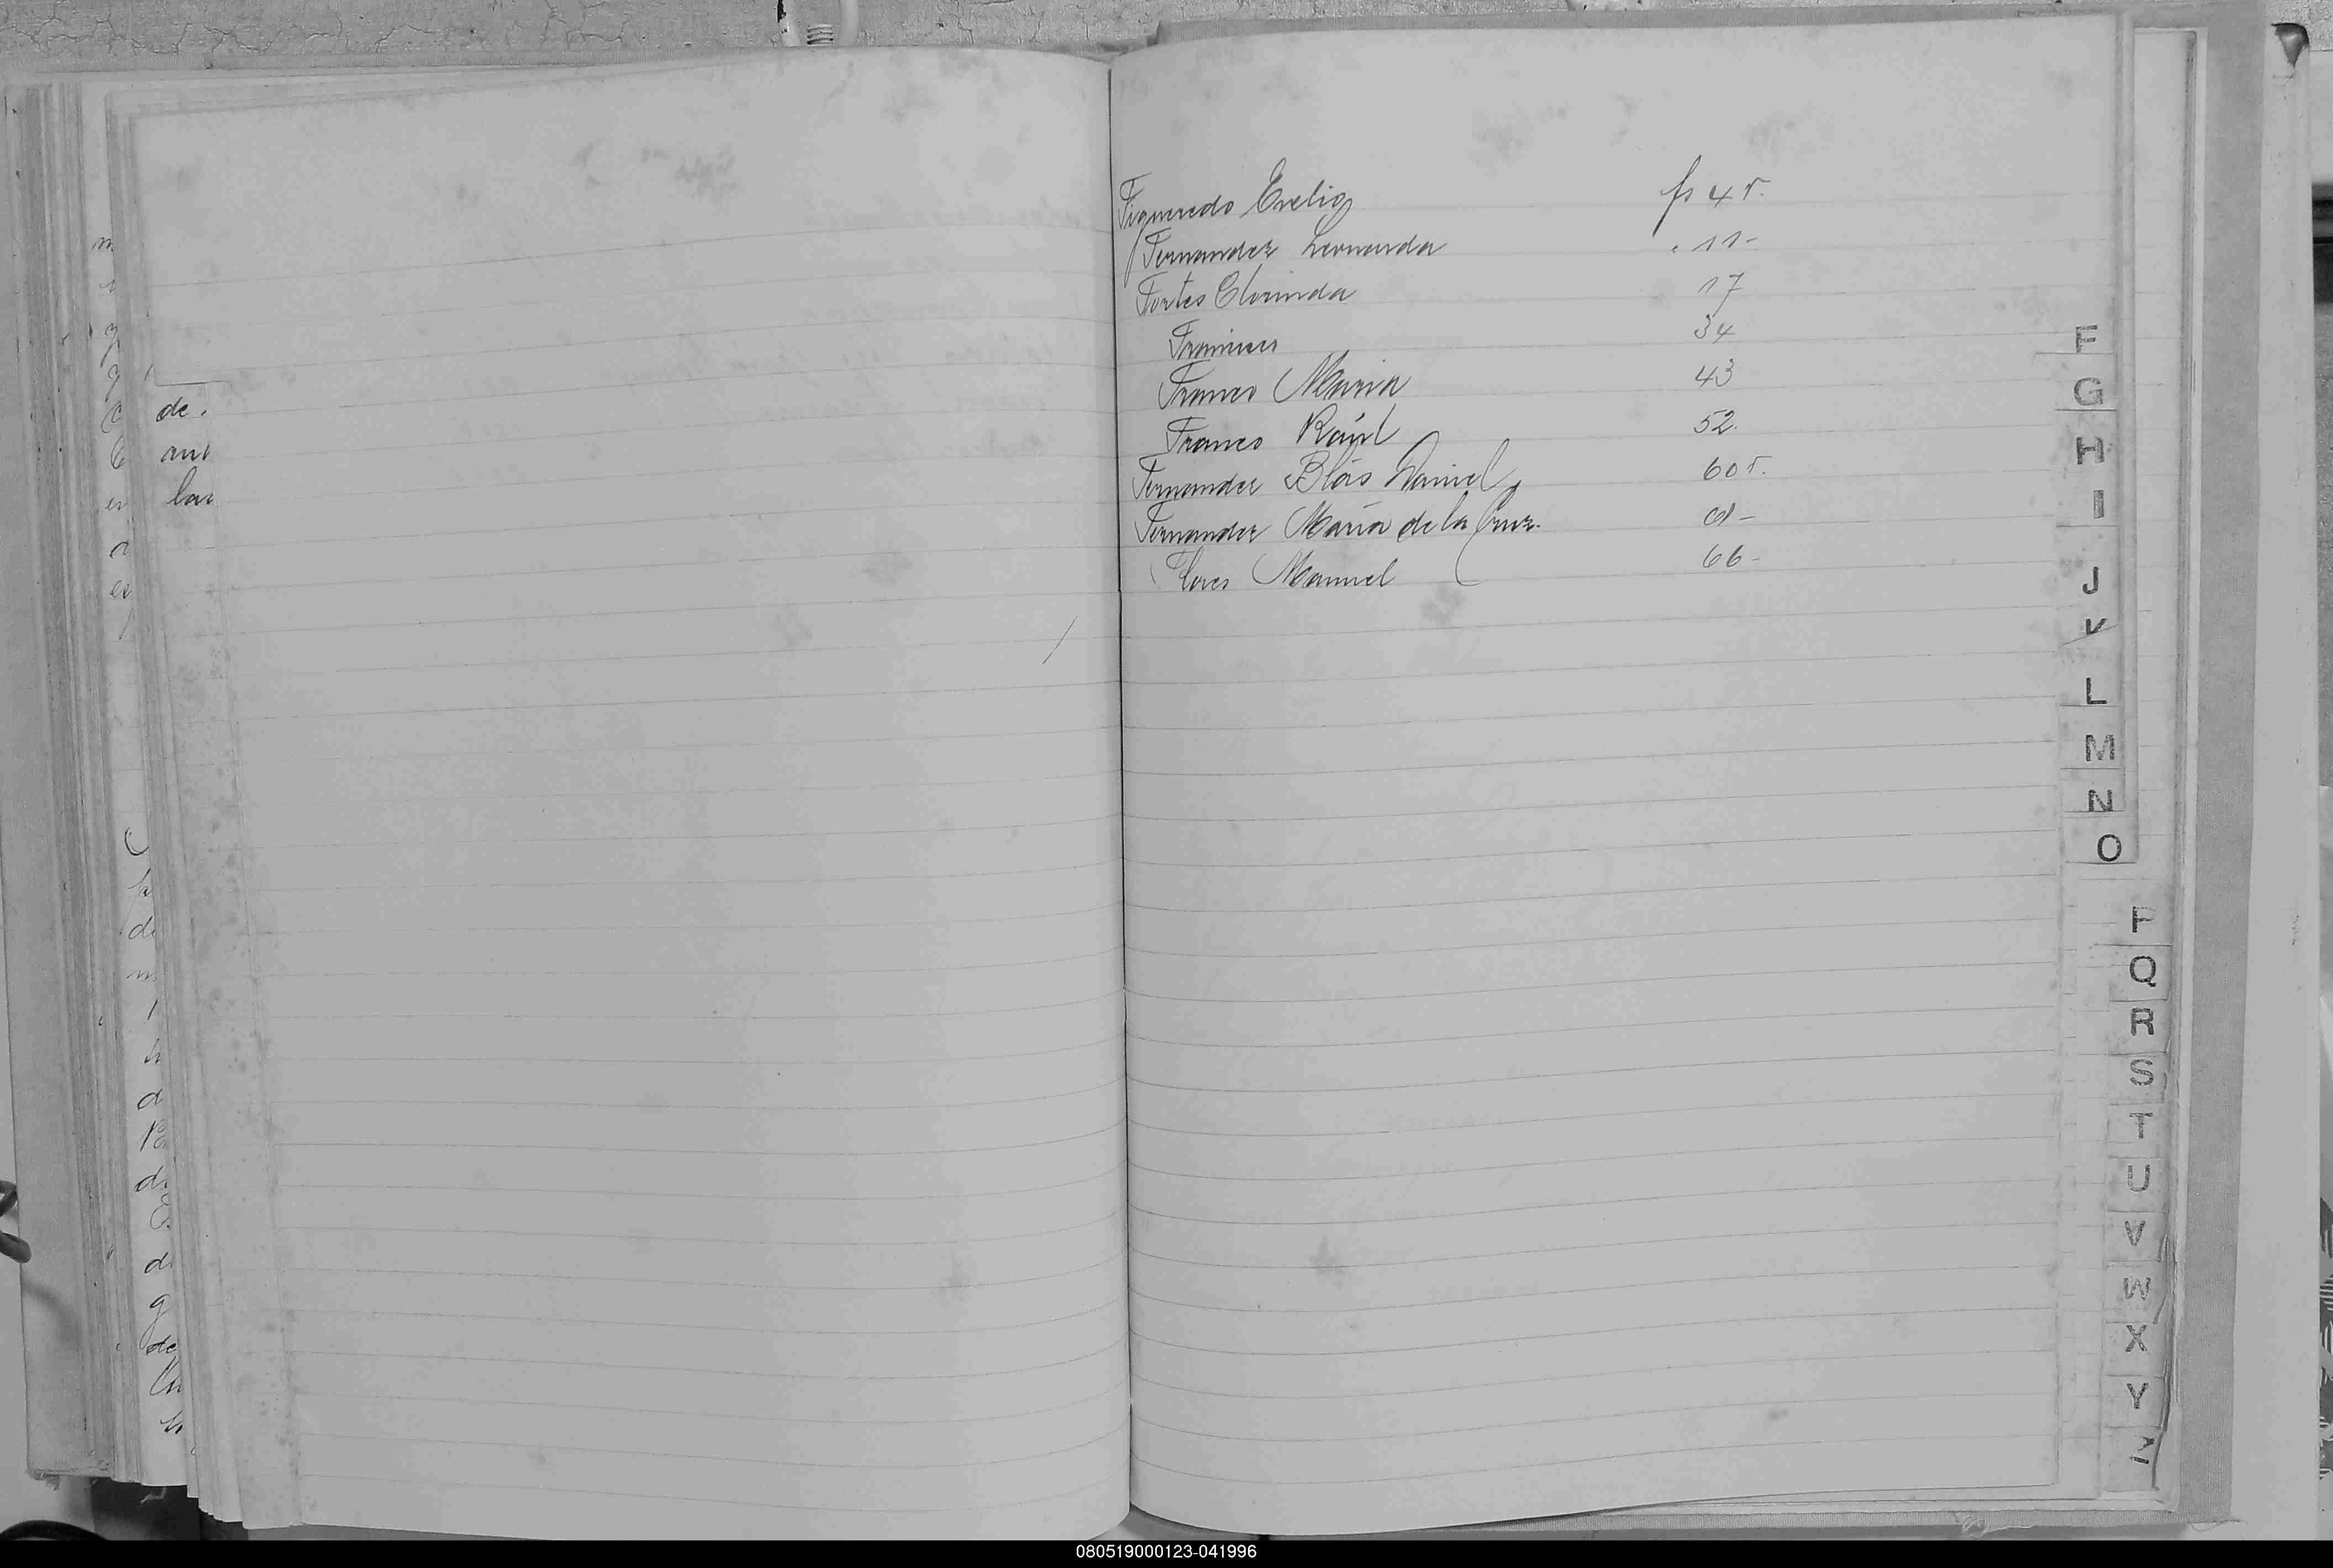 Figueredo Evelio fs 4 r.
Fernandez Leonarda " 11-
Fortes Clorinda 17
Francisco 34
Franco Maria 43
Franco Raúl 52.
Fernandez Blás Daniel 60 r.
Fernandez María de la Cruz.
Flores Manuel 66-
de
lar
F
G
H
I
J
K
L
M
N
O
P
Q
R
S
T
U
V
W
X
Y
Z
080519000123-041996